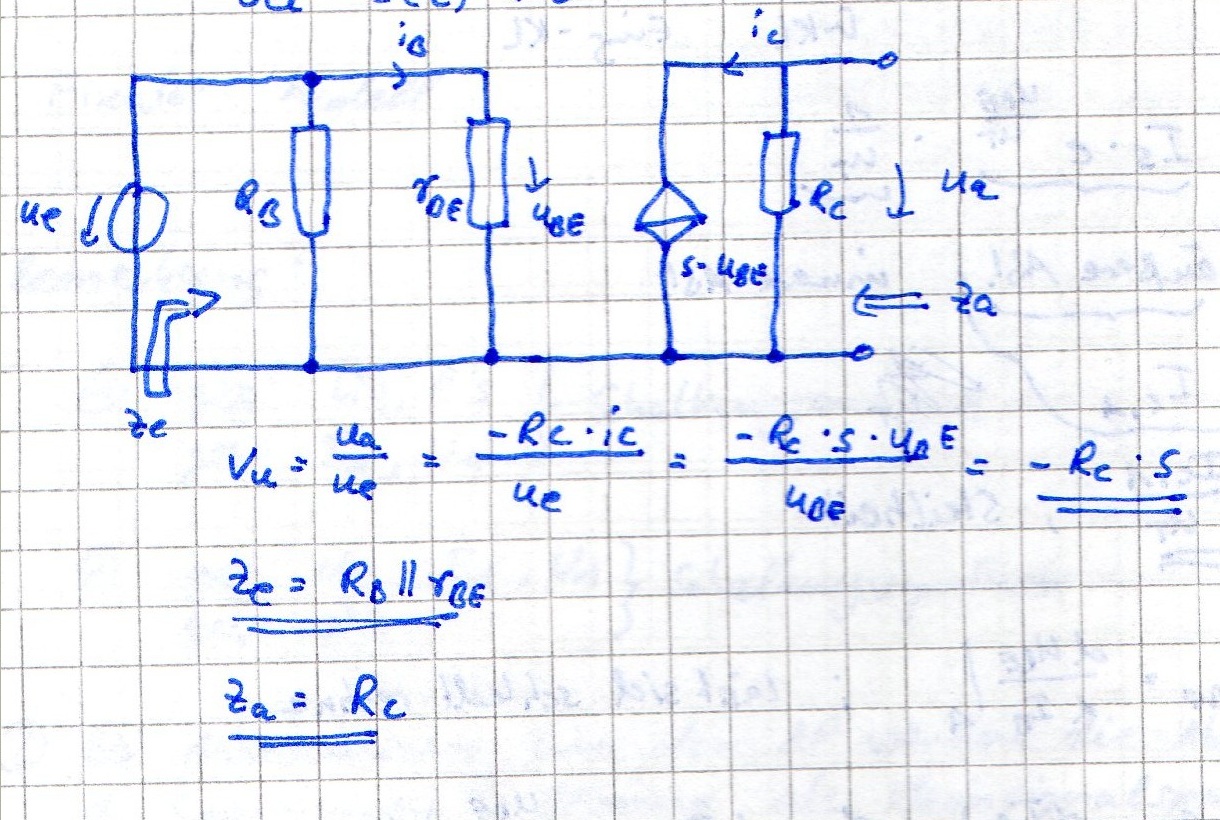 iB
iC
ue
RB
rBE
uBE
s·uBE
RC
ua
za
ze
Vu = ua/ue = -RC·iC/ue = -RC·s·uBE/uBE = -RC·s
ze = RB || rBE
za = RC